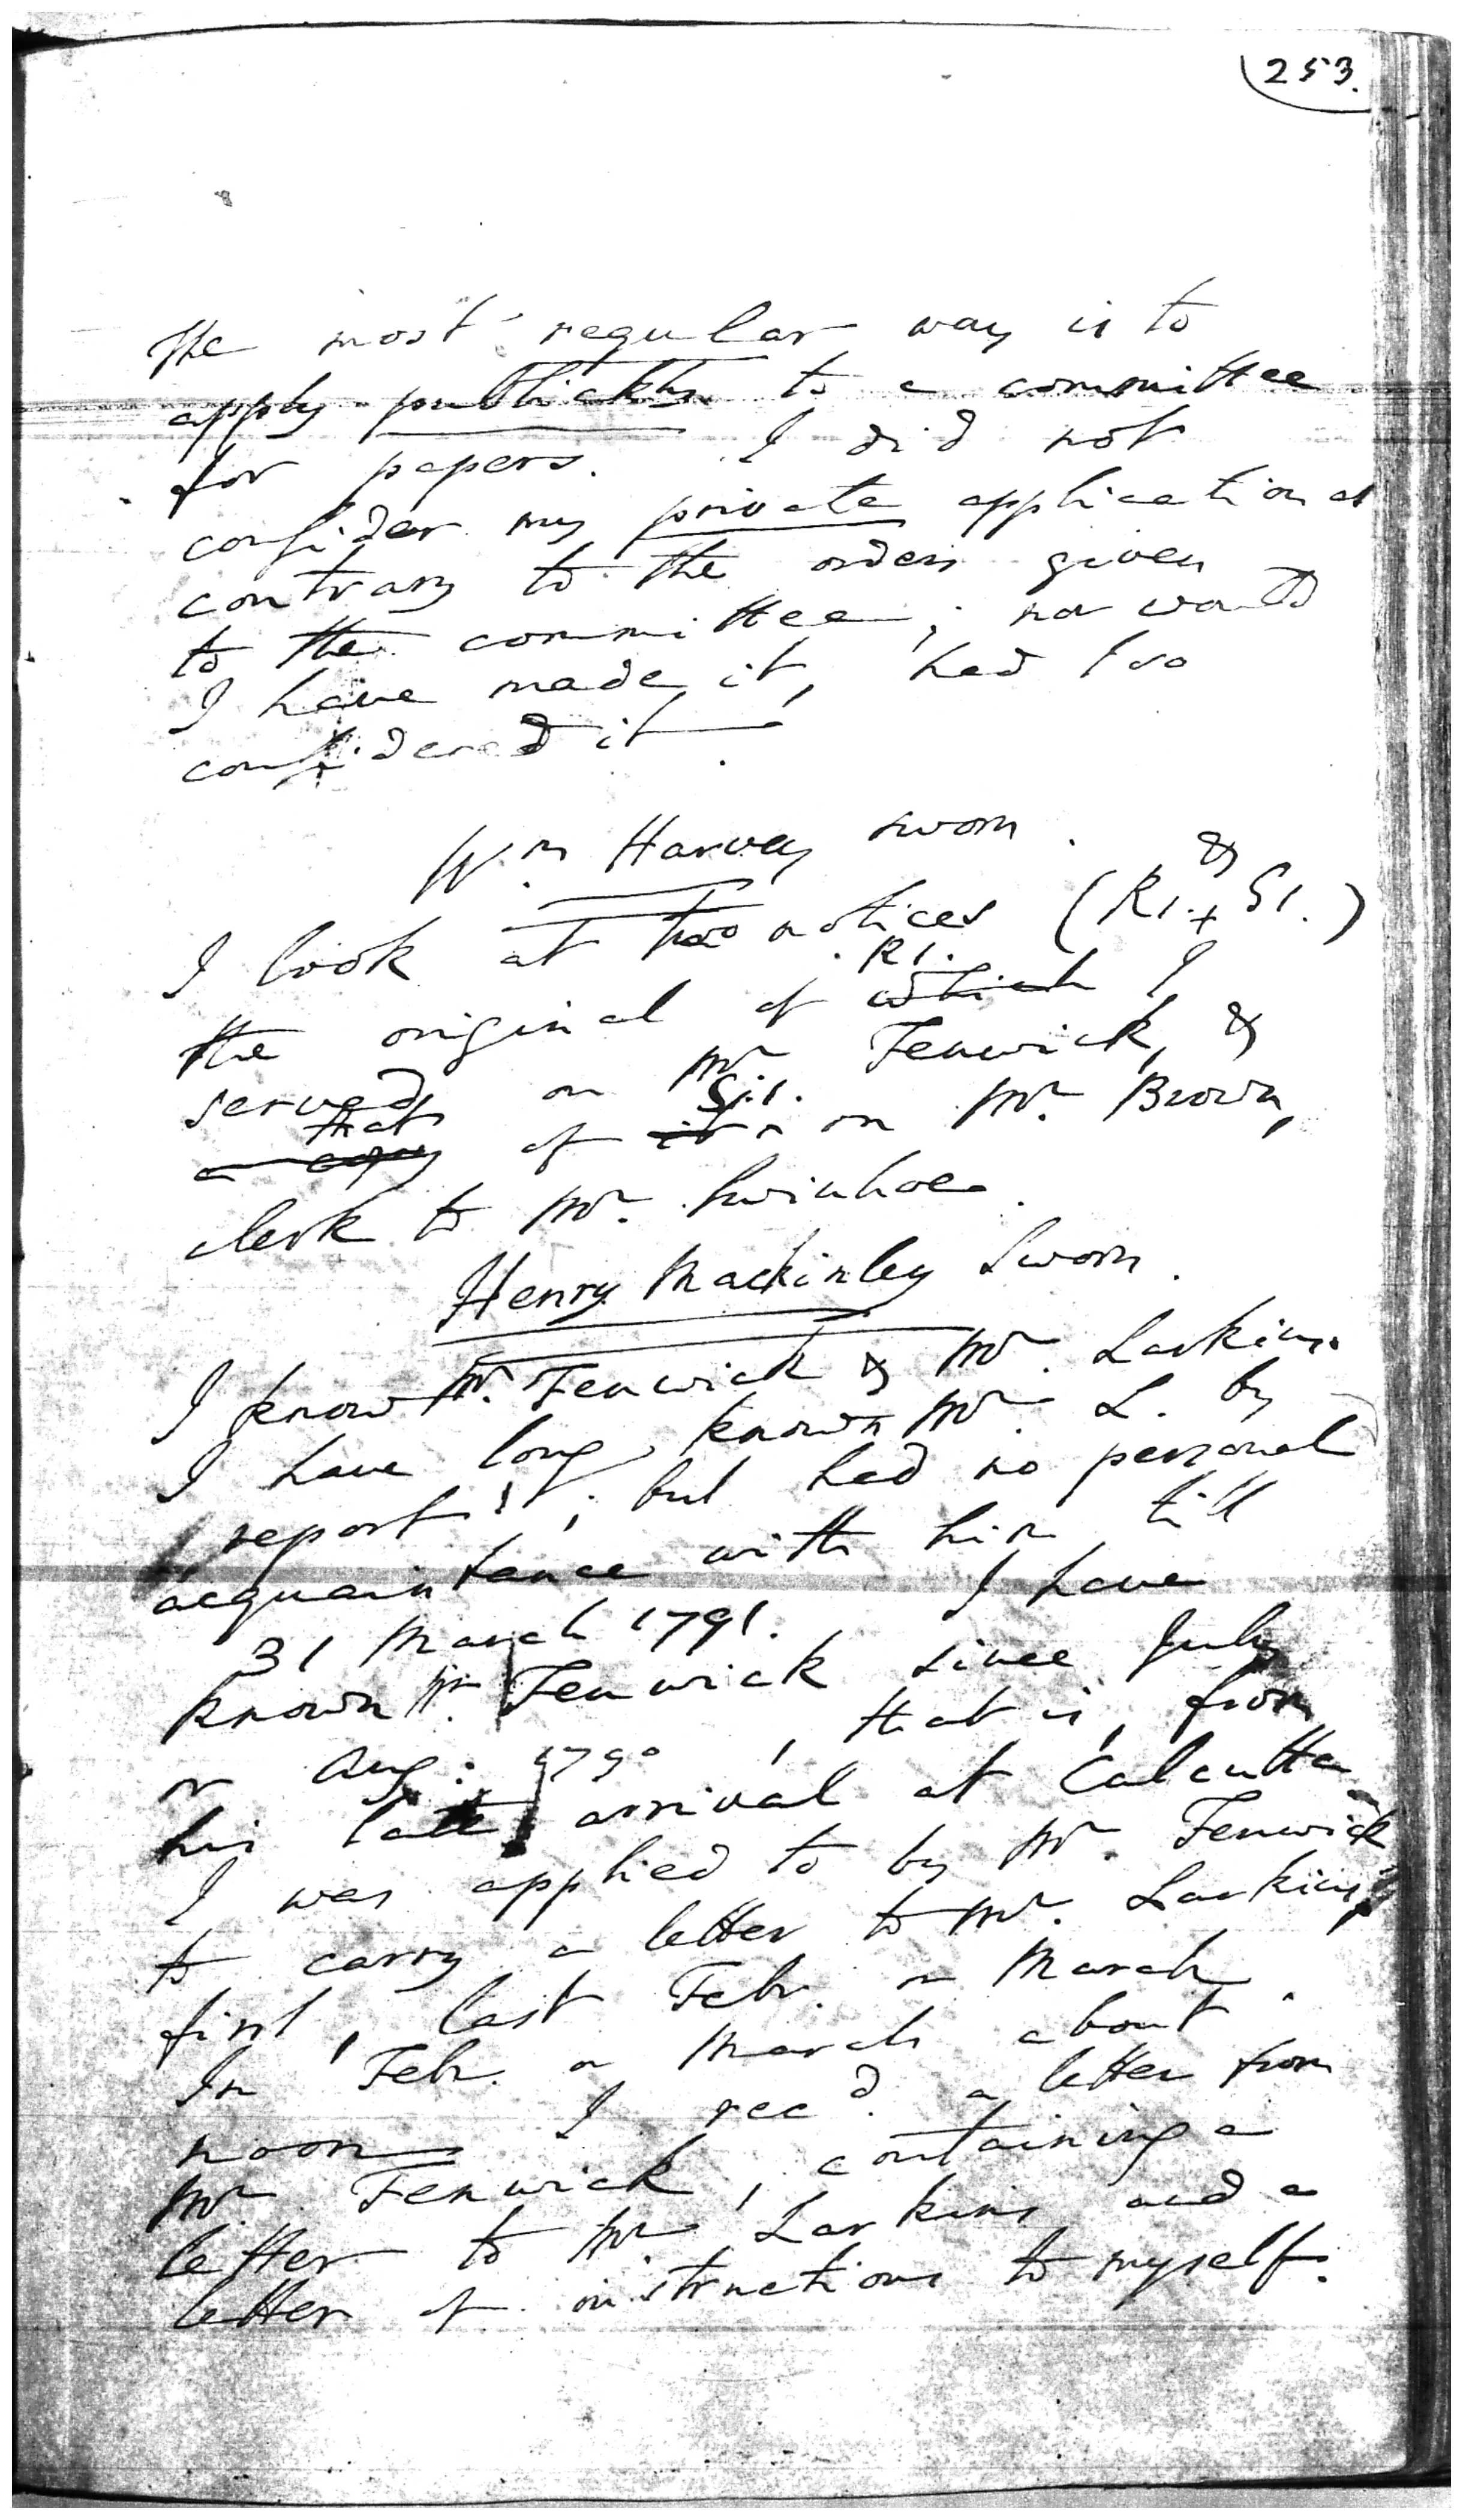 253.
The most regular way is to
apply publickly to a committee
for papers. I did not
consider my private application as
contrary to the orders given
to the committee; nor would
I have made it, had I so
considered it.
Wm Harvey sworn.
I look at two notices (R1. & S1.)
the original of which R1. I
served on Mr Fenwick, &
a copy that of it S.1. on Mr. Brown,
clerk to Mr. Swinhoe.
Henry Mackinley Sworn.
I know Mr. Fenwick & Mr. Larkins.
I have long known Mr. L. by
report; but had no personal
acquaintance with him till
31 March 1791. I have
known Mr. Fenwick since July
or Aug: 1790, that is, from
his late arrival at Calcutta.
I was applied to by Mr. Fenwick
to carry a letter to Mr. Larkins,
first, last Febr. or March.
In Febr. or March about
noon I recd. a letter from
Mr Fenwick, containing a
letter to Mr Larkins and a
letter of instructions to myself.